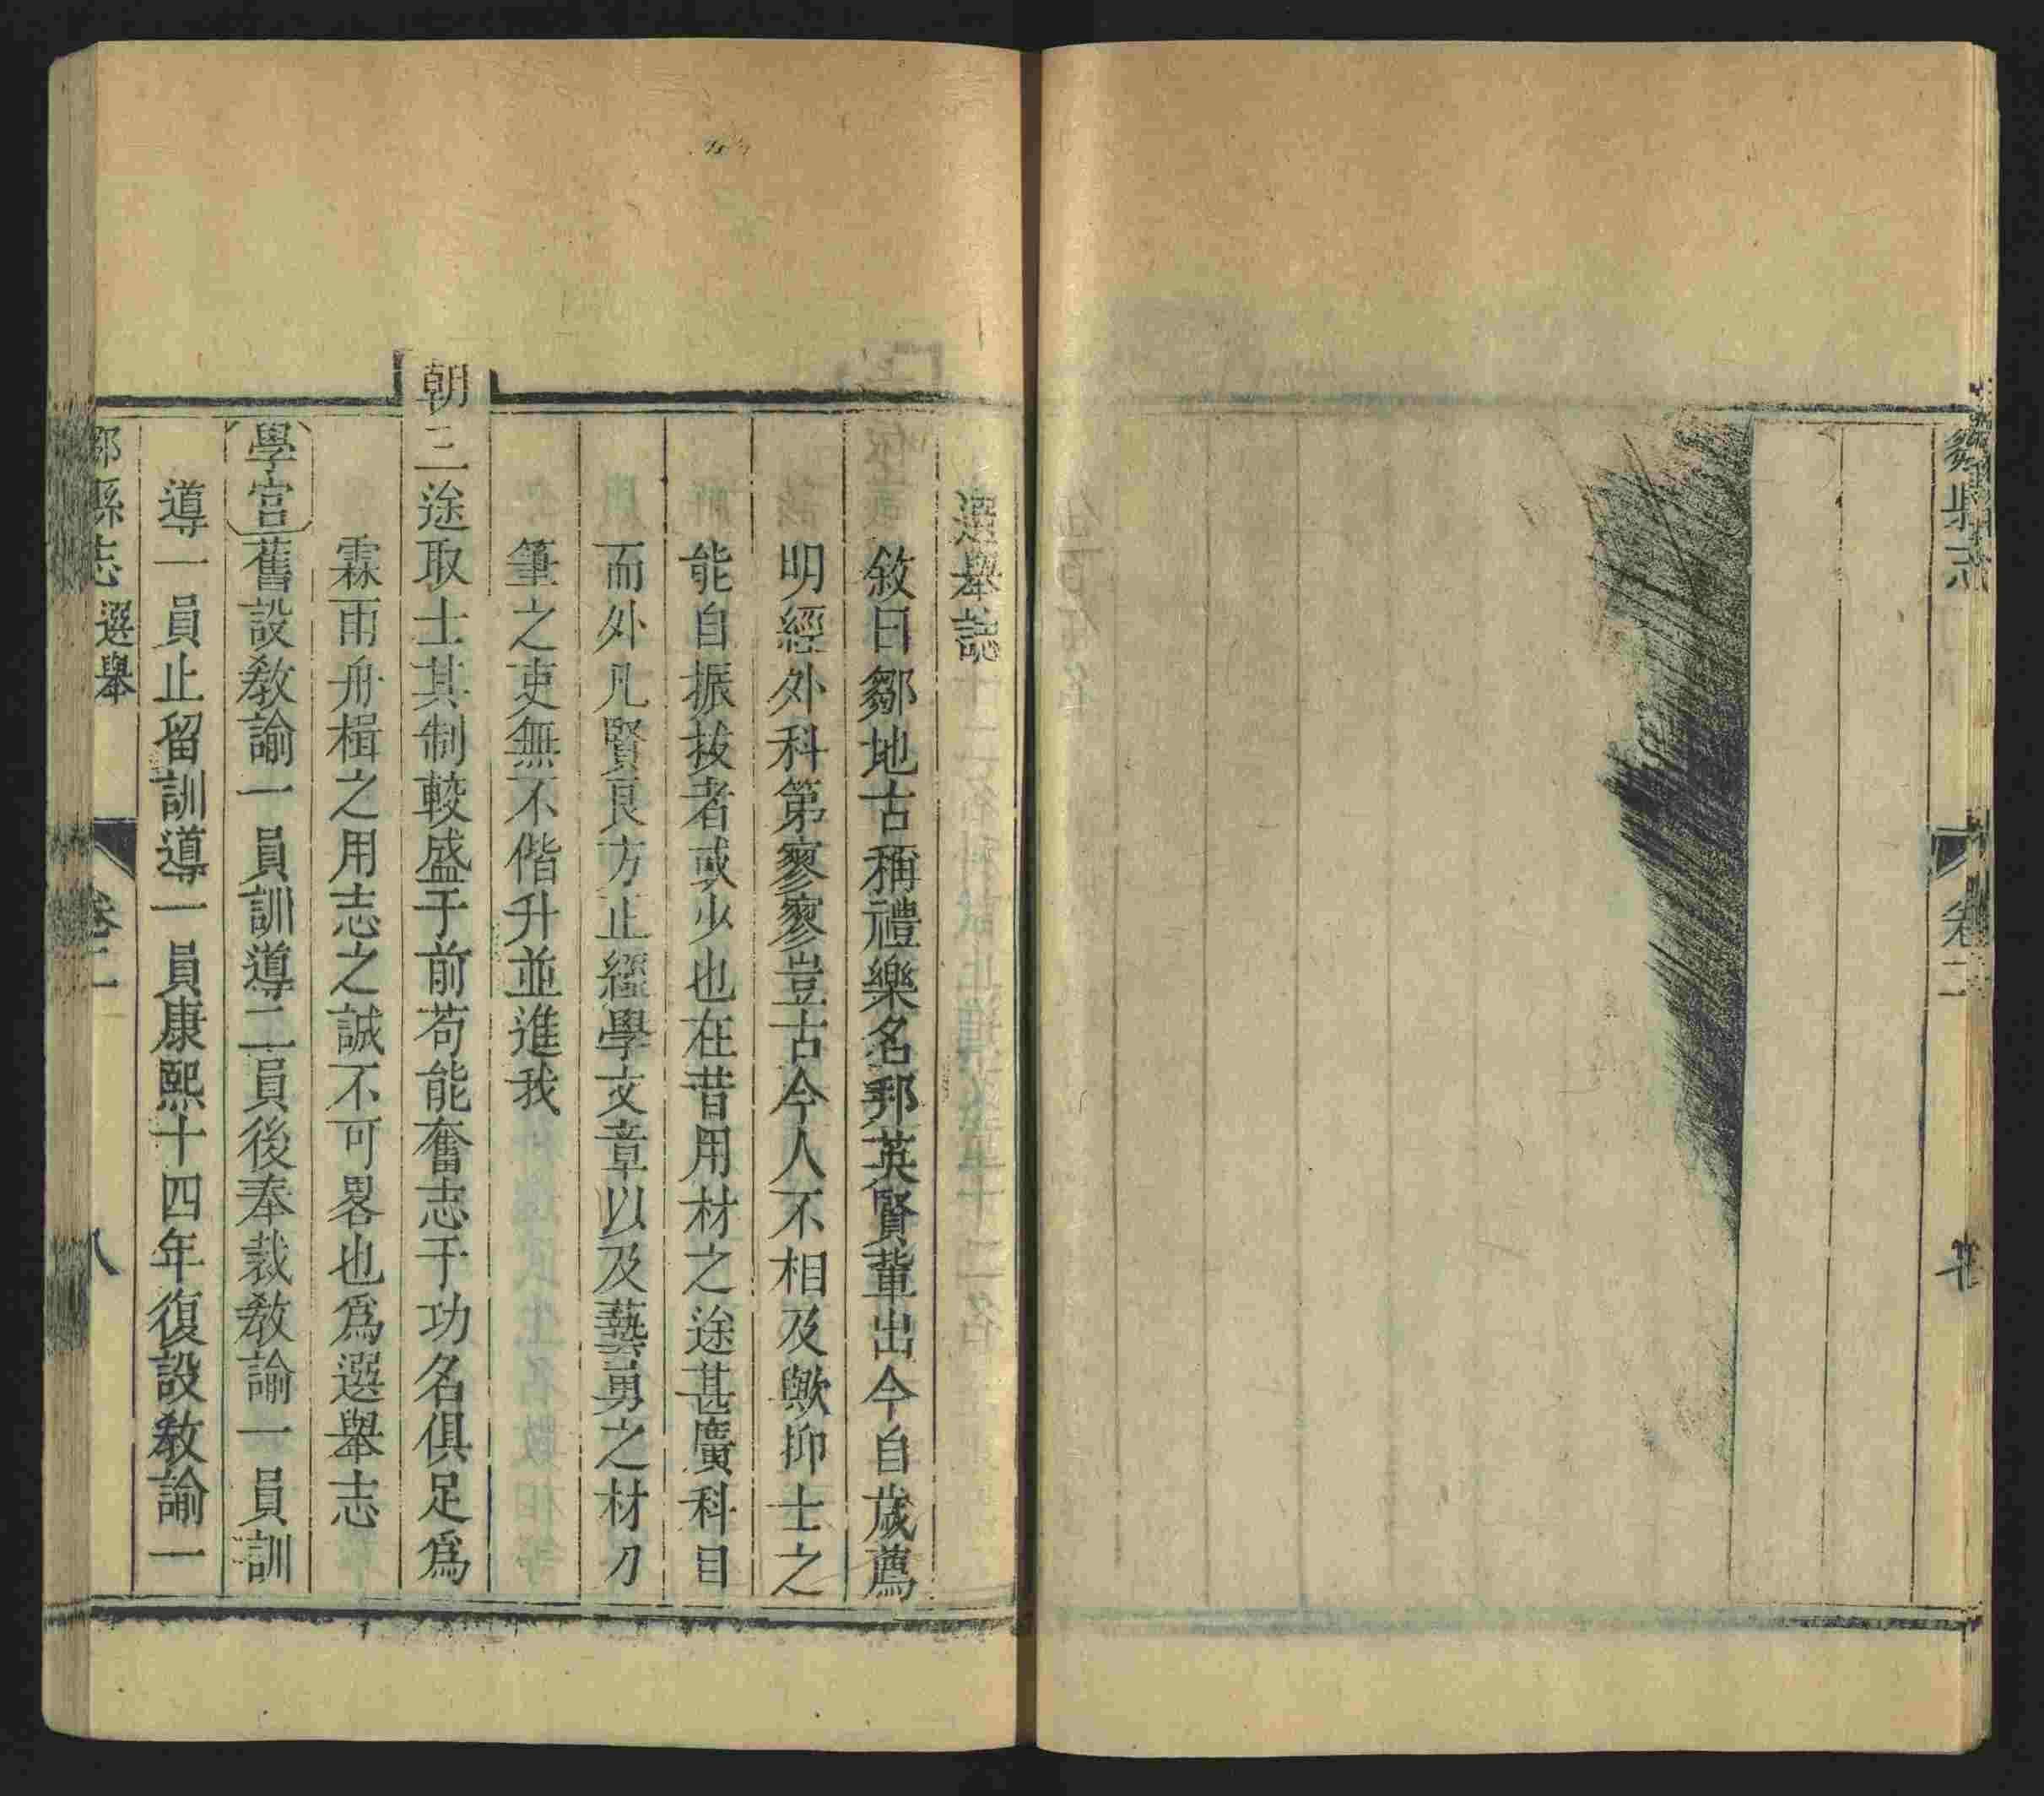 鄒縣志
卷二
選舉誌
敘曰鄒地古稱禮樂名邦英賢輩出今自歲薦
明經外科第寥寥豈古今人不相及歟抑士之
能自振拔者或少也在昔用材之途甚廣科目
而外凡賢良方正經學文章以及藝勇之材刀
筆之吏無不偕升並進我
朝三途取士其制較盛于前苟能奮志于功名俱足爲
霖雨舟楫之用志之誠不可畧也爲選舉志
學官舊設教諭一員訓導二員後奉裁教諭一員訓
導一員止留訓導一員康熙十四年復設教諭一
鄒縣志 選舉
卷二
八